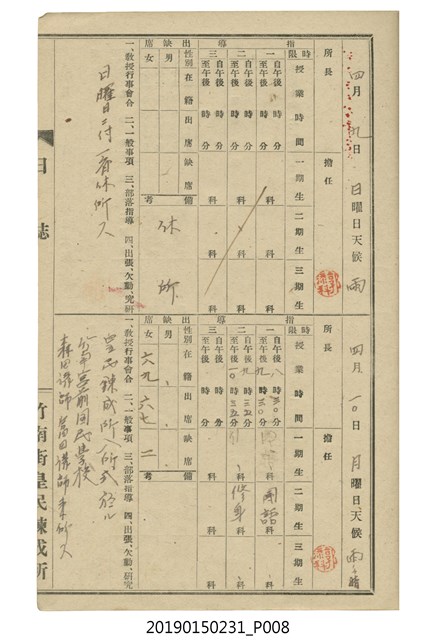 四月九日 日曜日 天候 雨
所長 擔任
指導
時限 授業時間 一期生 二期生 三期生
一 自午後 時 分 至午後 時 分 科 科 科
二 自午後 時 分 至午後 時 分 科 科 科
三 自午後 時 分 至午後 時 分 科 科 科
出缺席
性別 在籍 出席 缺席 備考
男
女
休所
一、教授行事會合 二、一般事項 三、部落指導 四、出張、欠勤、究研
日曜日ニ付一番休所ス
日誌
四月一〇日 月曜日 天候 雨後晴
所長 擔任
指導
時限 授業時間 一期生 二期生 三期生
一 自午後 八時三〇分 至午後 九時三〇分 科 國語科 科
二 自午後 九時三五分 至午後 一〇時三五分 科 修身科 科
三 自午後 時 分 至午後 時 分 科 科 科
出缺席
性別 在籍 出席 缺席 備考
男
女 六九 六七 二
一、教授行事會合 二、一般事項 三、部落指導 四、出張、欠勤、究研
皇民鍊成所入所式
宮前國民學校
森田講師
講師來所ス
竹南街皇民鍊成所
20190150231_P008